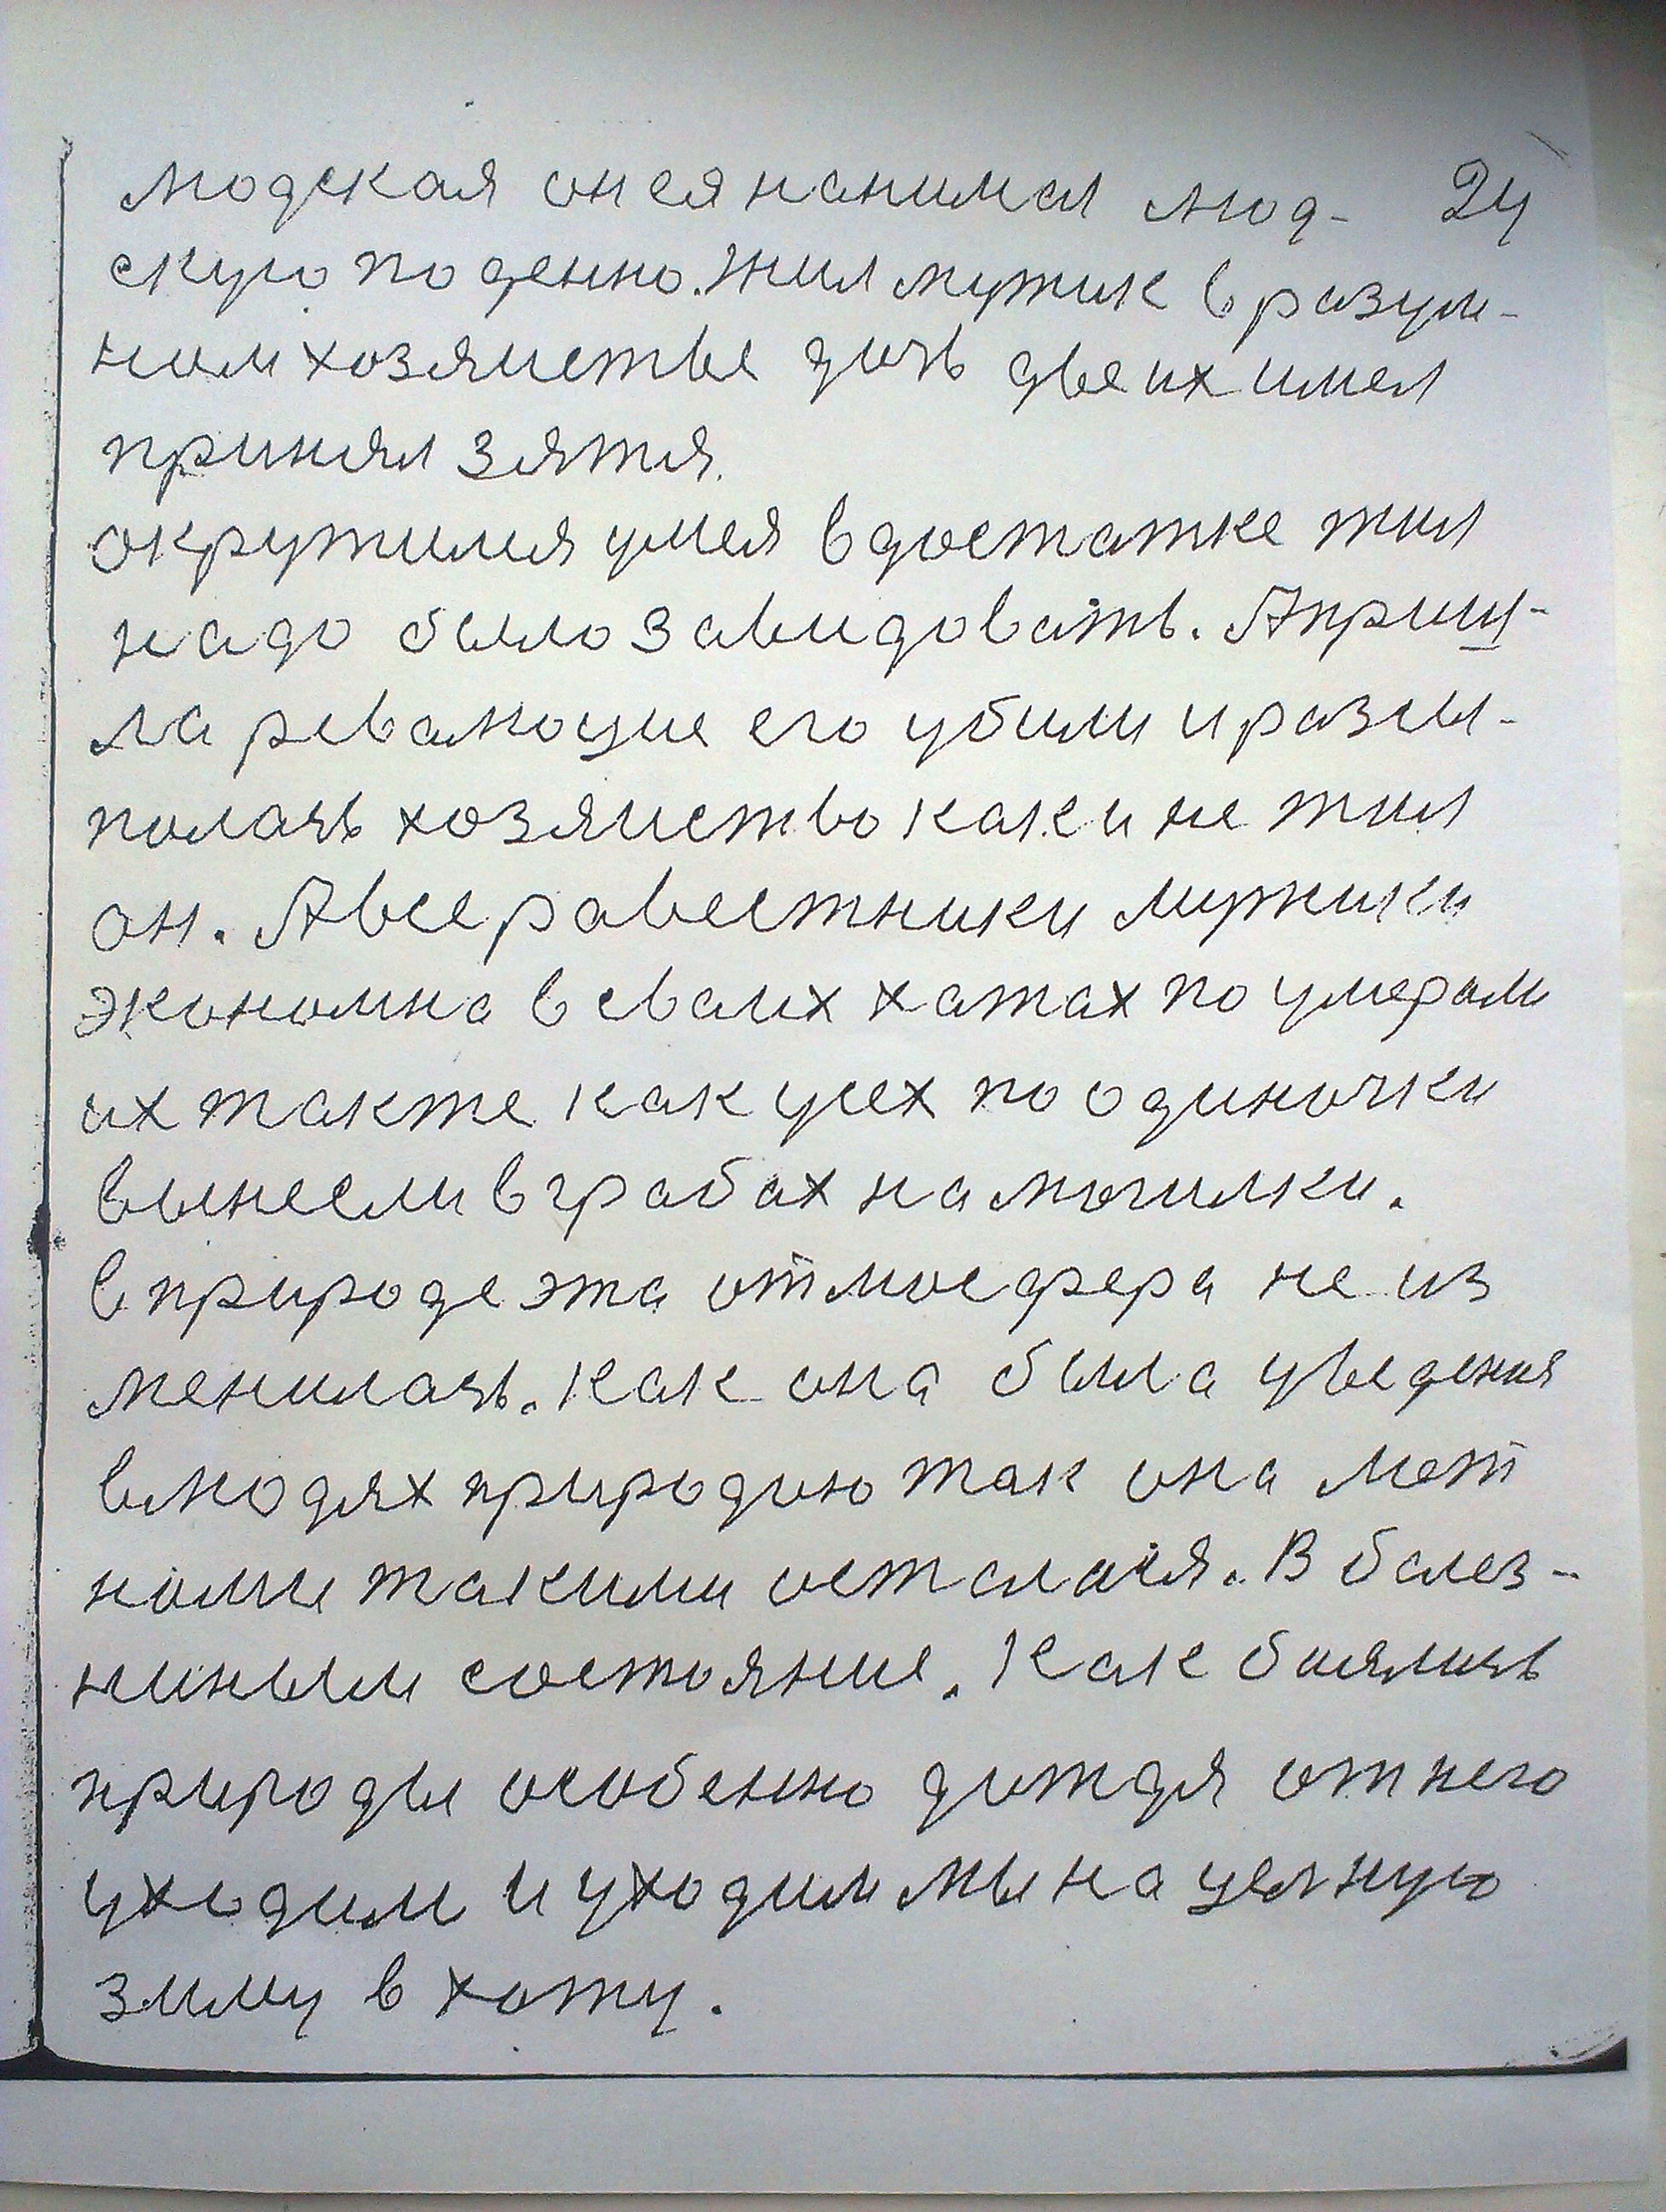 людская он ея нанимал люд- 24
скую по денно. Жил мужик в разум-
ном хозяистве дочь двеих имел
принял зятя.
окружился умея в достатке жил
надо было завидовать. А приш-
ла революцие его убили и разсы-
полачь хозяиство как и не жил
он. А все равестники мужики
экономна в сваих хатах по умерали
их также как усех по одиночки
вынесли в грабах на могилки.
в природе эта отмосфера не из
менилачь. Как она была уведения
в людях природою так она мет
номи такими осталася. В балез-
ниными состояние. Как боялись
природы особенно дождя от него
уходим и уходим мы на целную
зиму в хоту.